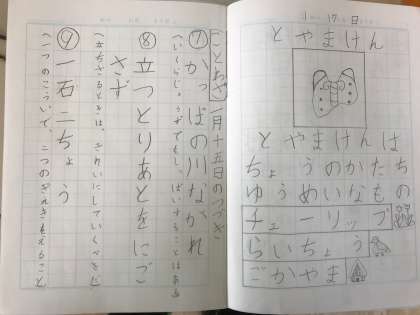 1月17日
とやまけん
とやまけんは
ちょうのかたち
ゆうめいなもの
チューリップ
らいちょう
ごかやま
ことわざ 一月十五日のつづき
⑦かっぱの川ながれ
(いくらじょうずでもしっぱいすることはある)
⑧立つとりあとをにご
さず
(立ちさるときは、きれいにしていくべきだ)
⑨一石二ちょう
(一つのこういで、二つのりえきをえること)